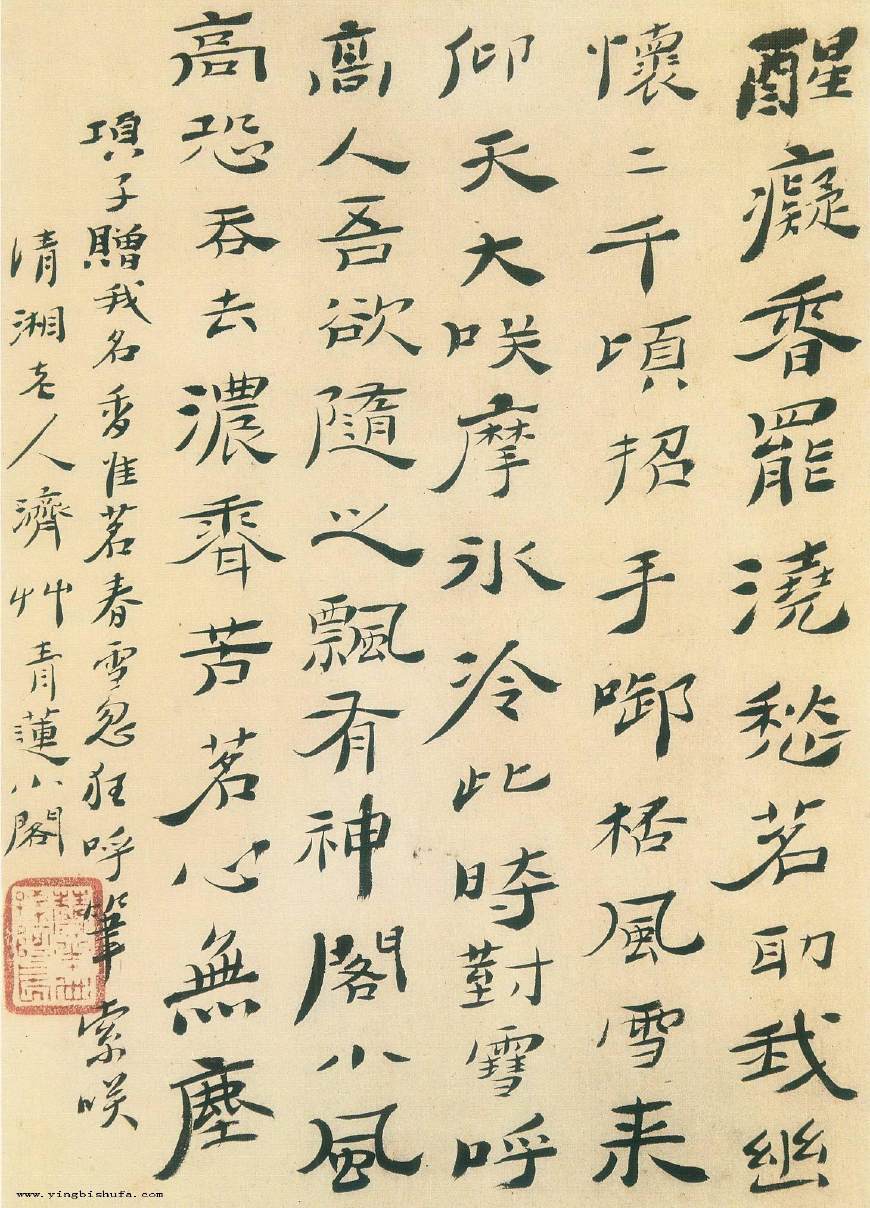 醒癡香罷澆愁茗助我幽
懷二千頃招手啣桮風雪来
仰天大咲摩氷冷此時對雪呼
高人吾欲隨之飄有神閣小風
高恐吞去濃香苦茗心無塵
項子贈我名香佳茗春雪忽狂呼筆索咲
清湘老人濟艸青蓮小閣
www.yingbishufa.com